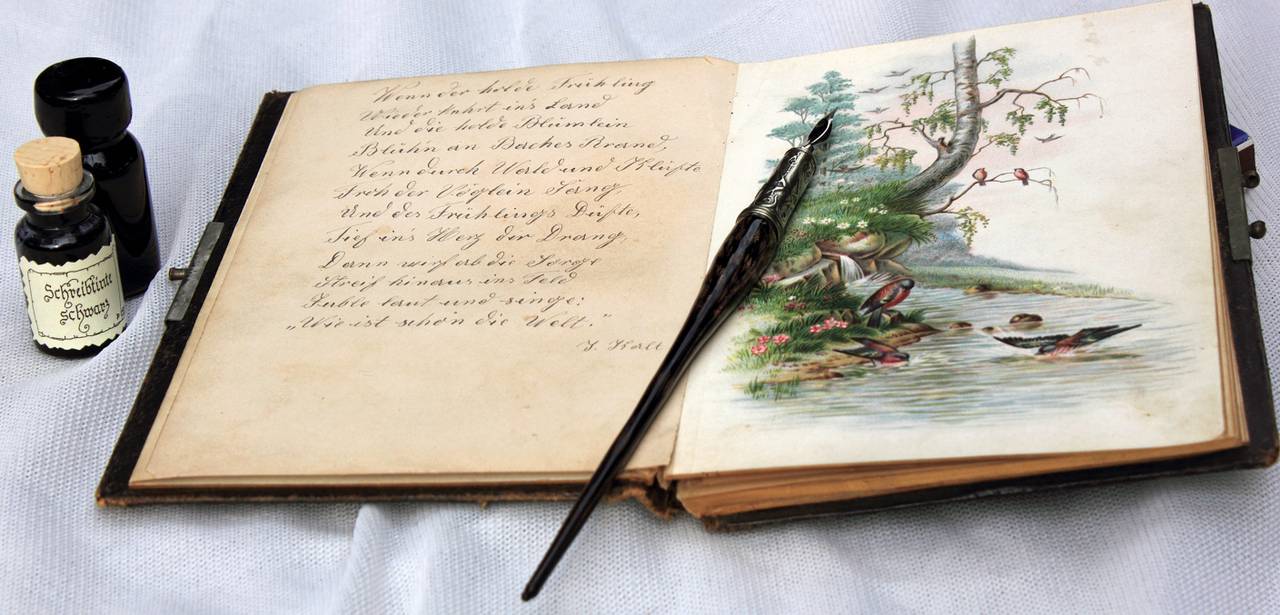 Schreibtinte
schwarz
Wenn der holde Frühling
Wieder kehrt in's Land
Und die holde Blümlein
Blüh'n an Baches Rand,
Wenn durch Wald und Klüfte
Froh der Vöglein Sang,
Und des Frühlings Düfte,
Tief in's Herz der Drang,
Dann wirf ab die Sorge
Streif hinaus ins Feld
Juble laut und singe:
„Wie ist schön die Welt."